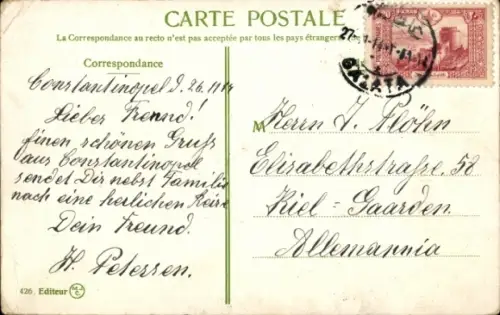 CARTE POSTALE
La Correspondance au recto n'est pas acceptée par tous les pays étrangers
Correspondance
Constantinopel d. 26.
Lieber Freund!
Einen schönen Gruß
aus Constantinopel
sendet Dir nebst Familie
nach eine herlichen Reise
Dein Freund.
H. Petersen.
426. Editeur
M
Herrn J. Plöhn
Elisabethstraße. 58
Kiel-Gaarden.
Allemannia
GALATA